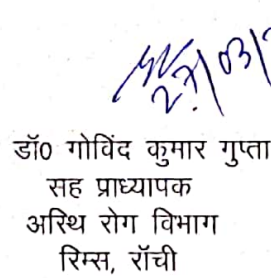 27/03/
डॉ0 गोविंद कुमार गुप्ता
सह प्राध्यापक
अस्थि रोग विभाग
रिम्स, रॉची